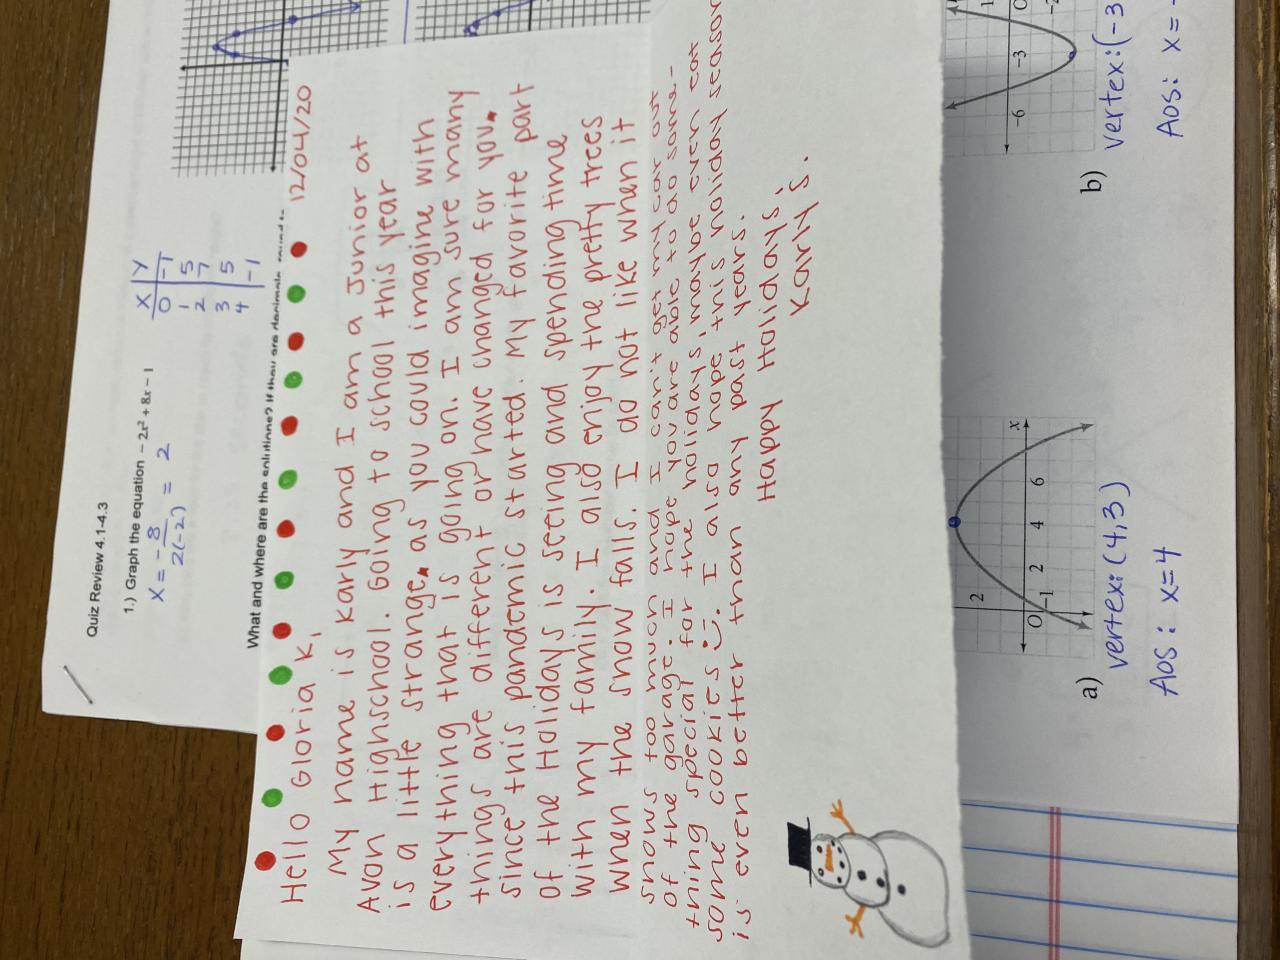 Quiz Review 4.1-4.3
1.) Graph the equation − 2x² + 8x − 1
x = - 8
2(-2) = 2
x y
0 -1
1 5
2 7
3 5
4 -1
What and where are the
12/04/20
Hello Gloria K,
My name is Karly and I am a Junior at
Avon Highschool. Going to school this year
is a little strange. as you could imagine with
everything that is going on. I am sure many
things are different or have changed for you.
since this pandemic started. My favorite part
of the Holidays is seeing and spending time
with my family. I also enjoy the pretty trees
when the snow falls. I do not like when it
snows too much and I can't get my car out
of the garage. I hope you are able to do some-
thing special for the holidays, maybe even eat
some cookies :). I also hope this holiday season
is even better than any past years.
Happy Holidays,
Karly S.
2
O
-1
2 4 6
x
a)
vertex: (4,3)
Aos: x=4
-6 -3 0
1
-2
b)
vertex: (-3
Aos: x = -